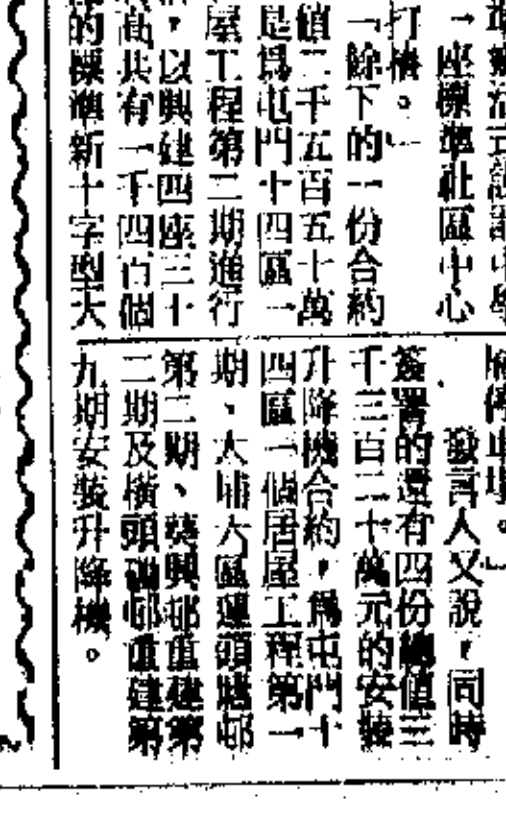 一座標準社區中心
打樁。」
「餘下的一份合約
值二千五百五十萬
是爲屯門十四區一
屋工程第二期進行
，以興建四座三十
高共有一千四百個
的標準新十字型大
停車場。」
發言人又說，同時
簽署的還有四份總值三
千三百二十萬元的安裝
升降機合約，爲屯門十
四區一個居屋工程第一
期、大埔六區運頭塘邨
第二期、葵興邨重建第
二期及橫頭磡邨重建第
九期安裝升降機。